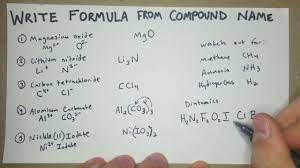 WRITE FORMULA FROM COMPOUND NAME
① Magnesium oxide MgO
Mg²⁺ O²⁻
② Lithium nitride Li₃N
Li⁺ N³⁻
③ Carbon tetrachloride CCl₄
C⁴⁺ Cl⁻
④ Aluminum Carbonate Al₂(CO₃)₃
Al³⁺ CO₃²⁻
⑤ Nickel(II) Iodate Ni(IO₃)₂
Ni²⁺ Iodate
Watch out for:
Methane CH₄
Ammonia NH₃
Hydrogen Gas H₂
Diatomics
H₂ N₂ F₂ O₂ I Cl B